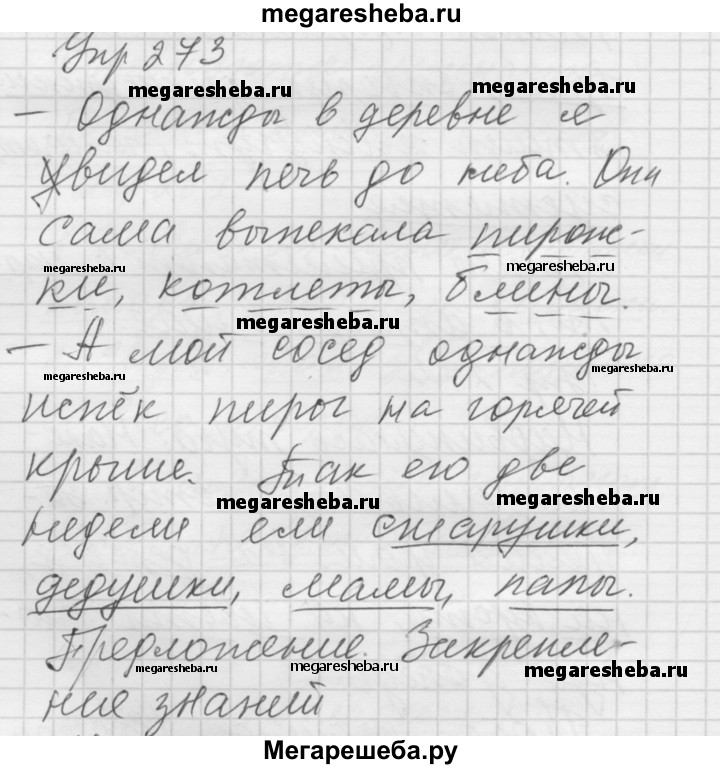 megaresheba.ru
Упр 273
megaresheba.ru
megaresheba.ru
— Однажды в деревне я
увидел печь до неба. Они
сама выпекала пирож-
megaresheba.ru
megaresheba.ru
ки, котлеты, блины.
megaresheba.ru
— А мой сосед однажды
megaresheba.ru
megaresheba.ru
испёк пирог на горячей
крыше. Так его две
megaresheba.ru
megaresheba.ru
недели ели старушки,
дедушки, мамы, папы.
Предложение. Закрепле-
megaresheba.ru
megaresheba.ru
megaresheba.ru
ние знаний
Мегарешеба.ру